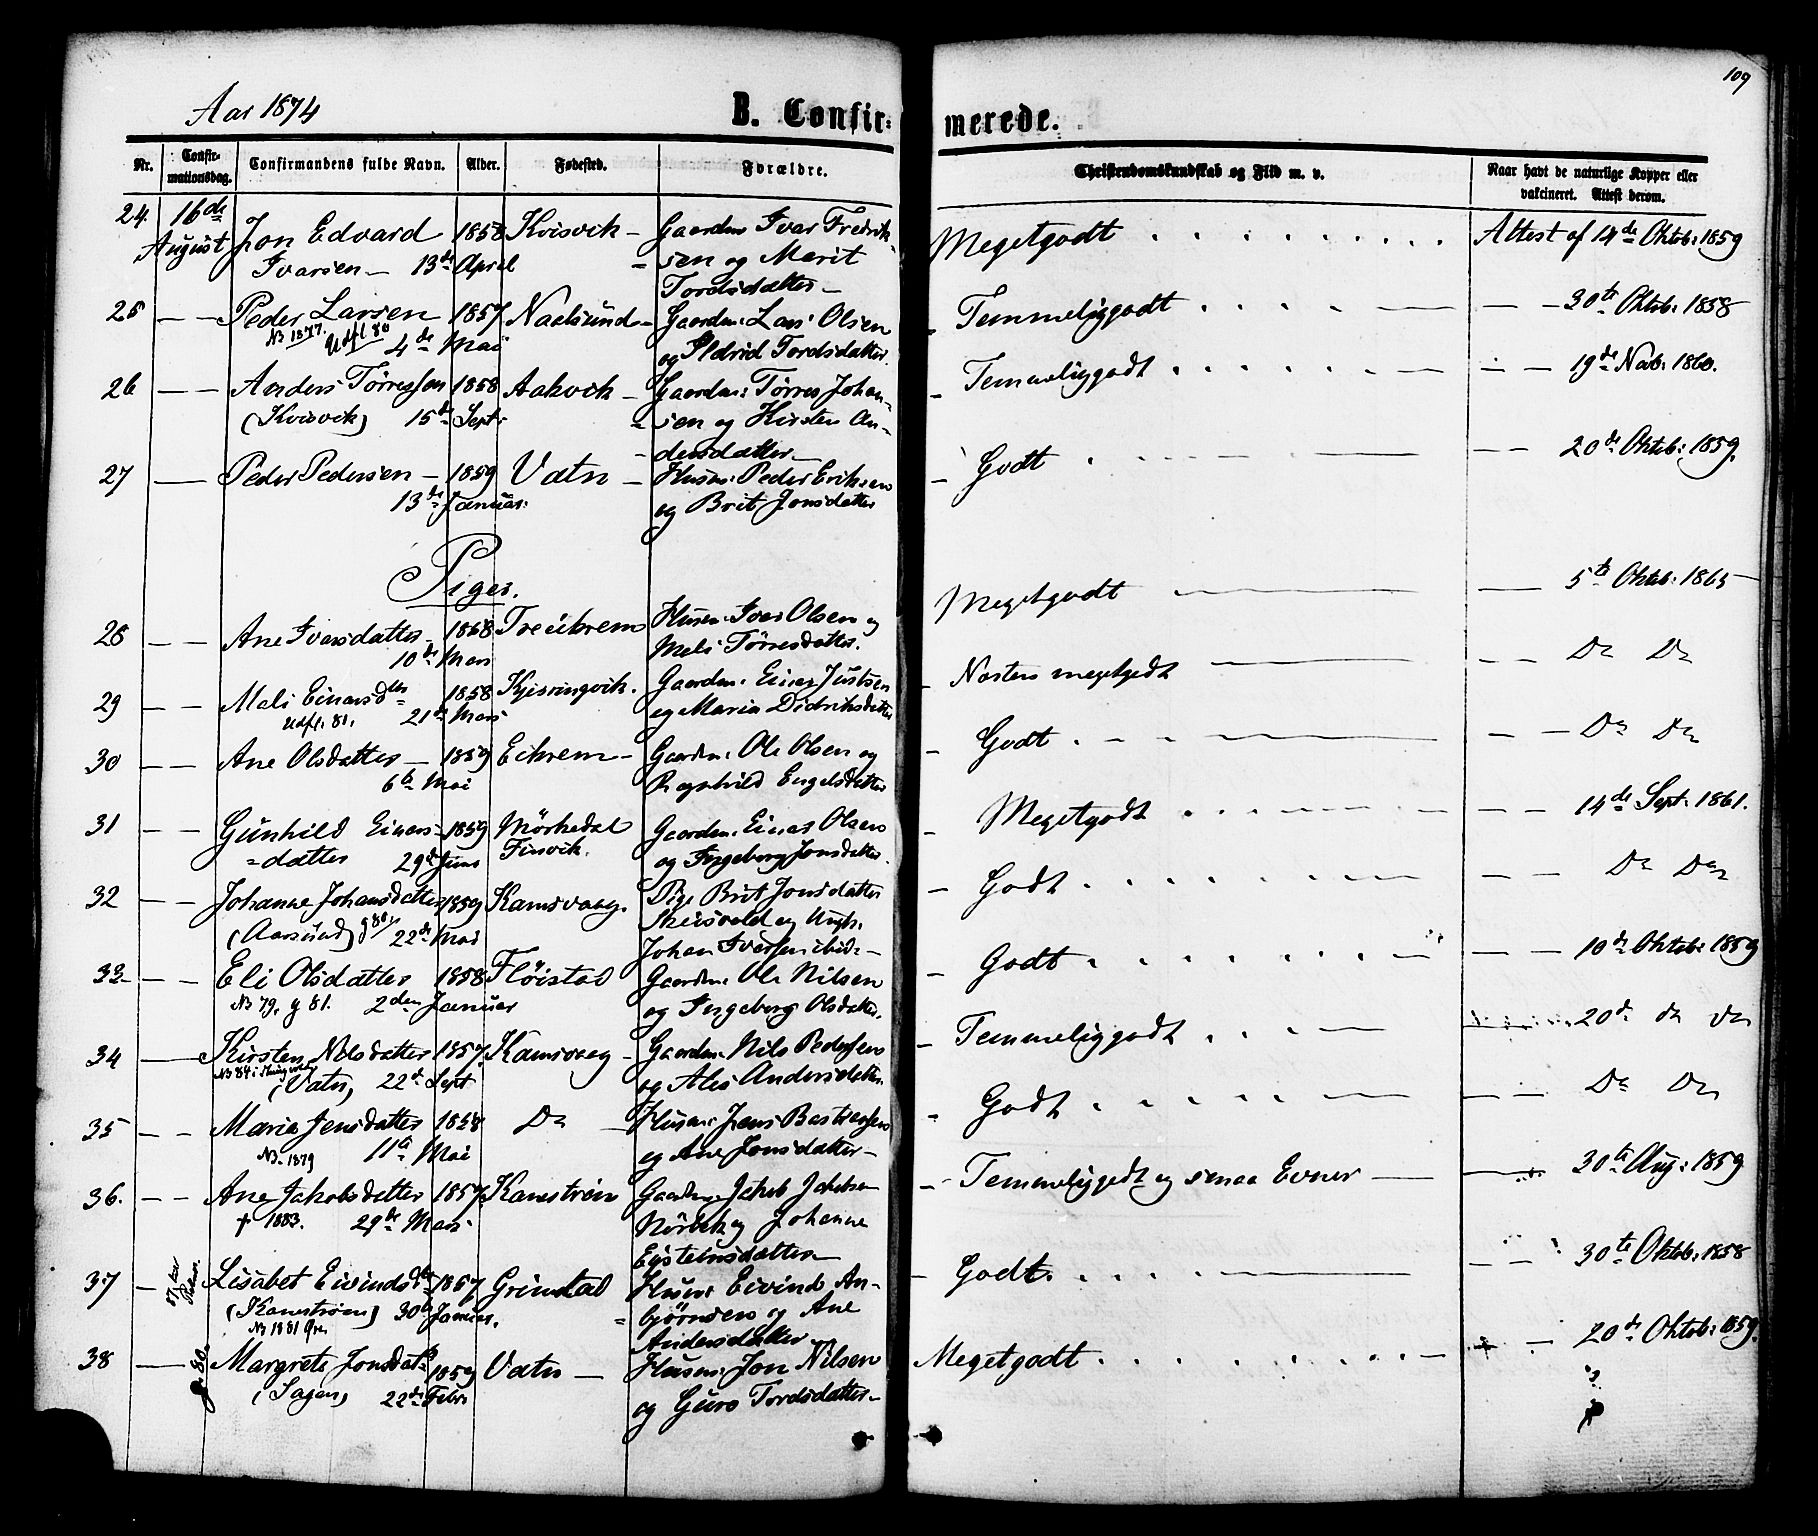 109
Aar 1874
B. Confirmerede.
Nr. Confirmationsdag. Confirmandens fulde Navn. Alder. Fødested. Forældre. Christendomskundskab og Flid m. v. Naar havt de naturlige Kopper eller vakcineret. Attest derom.
24. 16de Jon Edvard 1858 Kvisvik - Gaardm Ivar Fredrik- Megetgodt Attest af 14de Oktob: 1859
August Ivarsen - 13de April sen og Marit
Tordsdatter -
25 - - Peder Larsen 1857 Naalsund - Gaardm: Lars Olsen Temmeliggodt - - 30te Oktob: 1858
NB 1877. Udfl 80 4de Mai og Ildrid Tordsdatter
26 - - Anders Tørressen 1858 Aakvik - Gaardm: Tørres Johan- Temmeliggodt - - 19de Nov: 1860.
(Kvisvik) 15de Sept: sen og Kirsten An-
dersdatter -
27 - Peder Pedersen - 1859 Vatn - Husm: Peder Eriksen Godt - - 20de Oktob: 1859.
13de Januar: og Brit Jonsdatter
Piger.
28 - - Ane Ivarsdatter - 1858 Treekrem Husm: Ivar Olsen og Megetgodt - 5te Oktob: 1865
10de Mars Mali Tørresdatter.
29 - - Mali Einarsdter 1858 Kjøringvik. Gaardm: Einar Justsen Næsten megetgodt - - Do Do
Udfl. 81. 21de Mars og Maria Didriksdatter
30 - - Ane Olsdatter - 1859 Eikrem - Gaardm: Ole Olsen og Godt - - Do Do
6te Mai Ragnhild Engelsdatter
31 - - Gunhild Einars- 1859 Mørkedal Gaardm: Einar Olsen Megetgodt - - 14de Sept: 1861.
=datter 29de Juni Finvik. og Ingeborg Jonsdatter.
32 - - Johanne Johansdatter 1859 Kamsvaag. Pige Brit Jonsdatter Godt - - Do Do
(Aarsund) g 80 22de Mai Skeisvold og Ungk.
Johan Ivarsen ibid: -
33 - - Eli Olsdatter 1858 Fløistad Gaardm: Ole Nilsen Godt - - 10de Oktob: 1859
NB 79, g 81. 2den Januar og Ingeborg Olsdatter.
34 - Kirsten Nilsdatter 1857 Kamsvaag - Gaardm: Nils Pedersen Temmeliggodt 20de do do
NB 84 (Vatn) 22de Sept og Ales Andersdatter.
35 - - Maria Jensdatter 1858 Do - Husm: Jens Bastiansen Godt - - Do Do
NB 1879 11te Mai og Ane Jonsdatter -
36. - - Ane Jakobsdatter 1857 Kanestrøm Gaardm: Jakob Jakobsen Temmeliggodt og smaa Evner - 30te Aug: 1859
† 1883. 29de Mars Nørbek og Johanne
Eysteinsdatter -
37 - Lisabet Eivindsdtr 1857 Grimstad Husm: Eivind An- Godt - - 30te Oktob: 1858
(Kanestrøm) 30te Januar. bjørnsen og Ane
NB 1881 Andersdatter
38 - g 80 Margrete Jonsdatr 1859 Vatn - Husm: Jon Nilsen Megetgodt - 20de Oktob: 1859.
(Sagen) 22de Febr og Guro Tordsdatter -